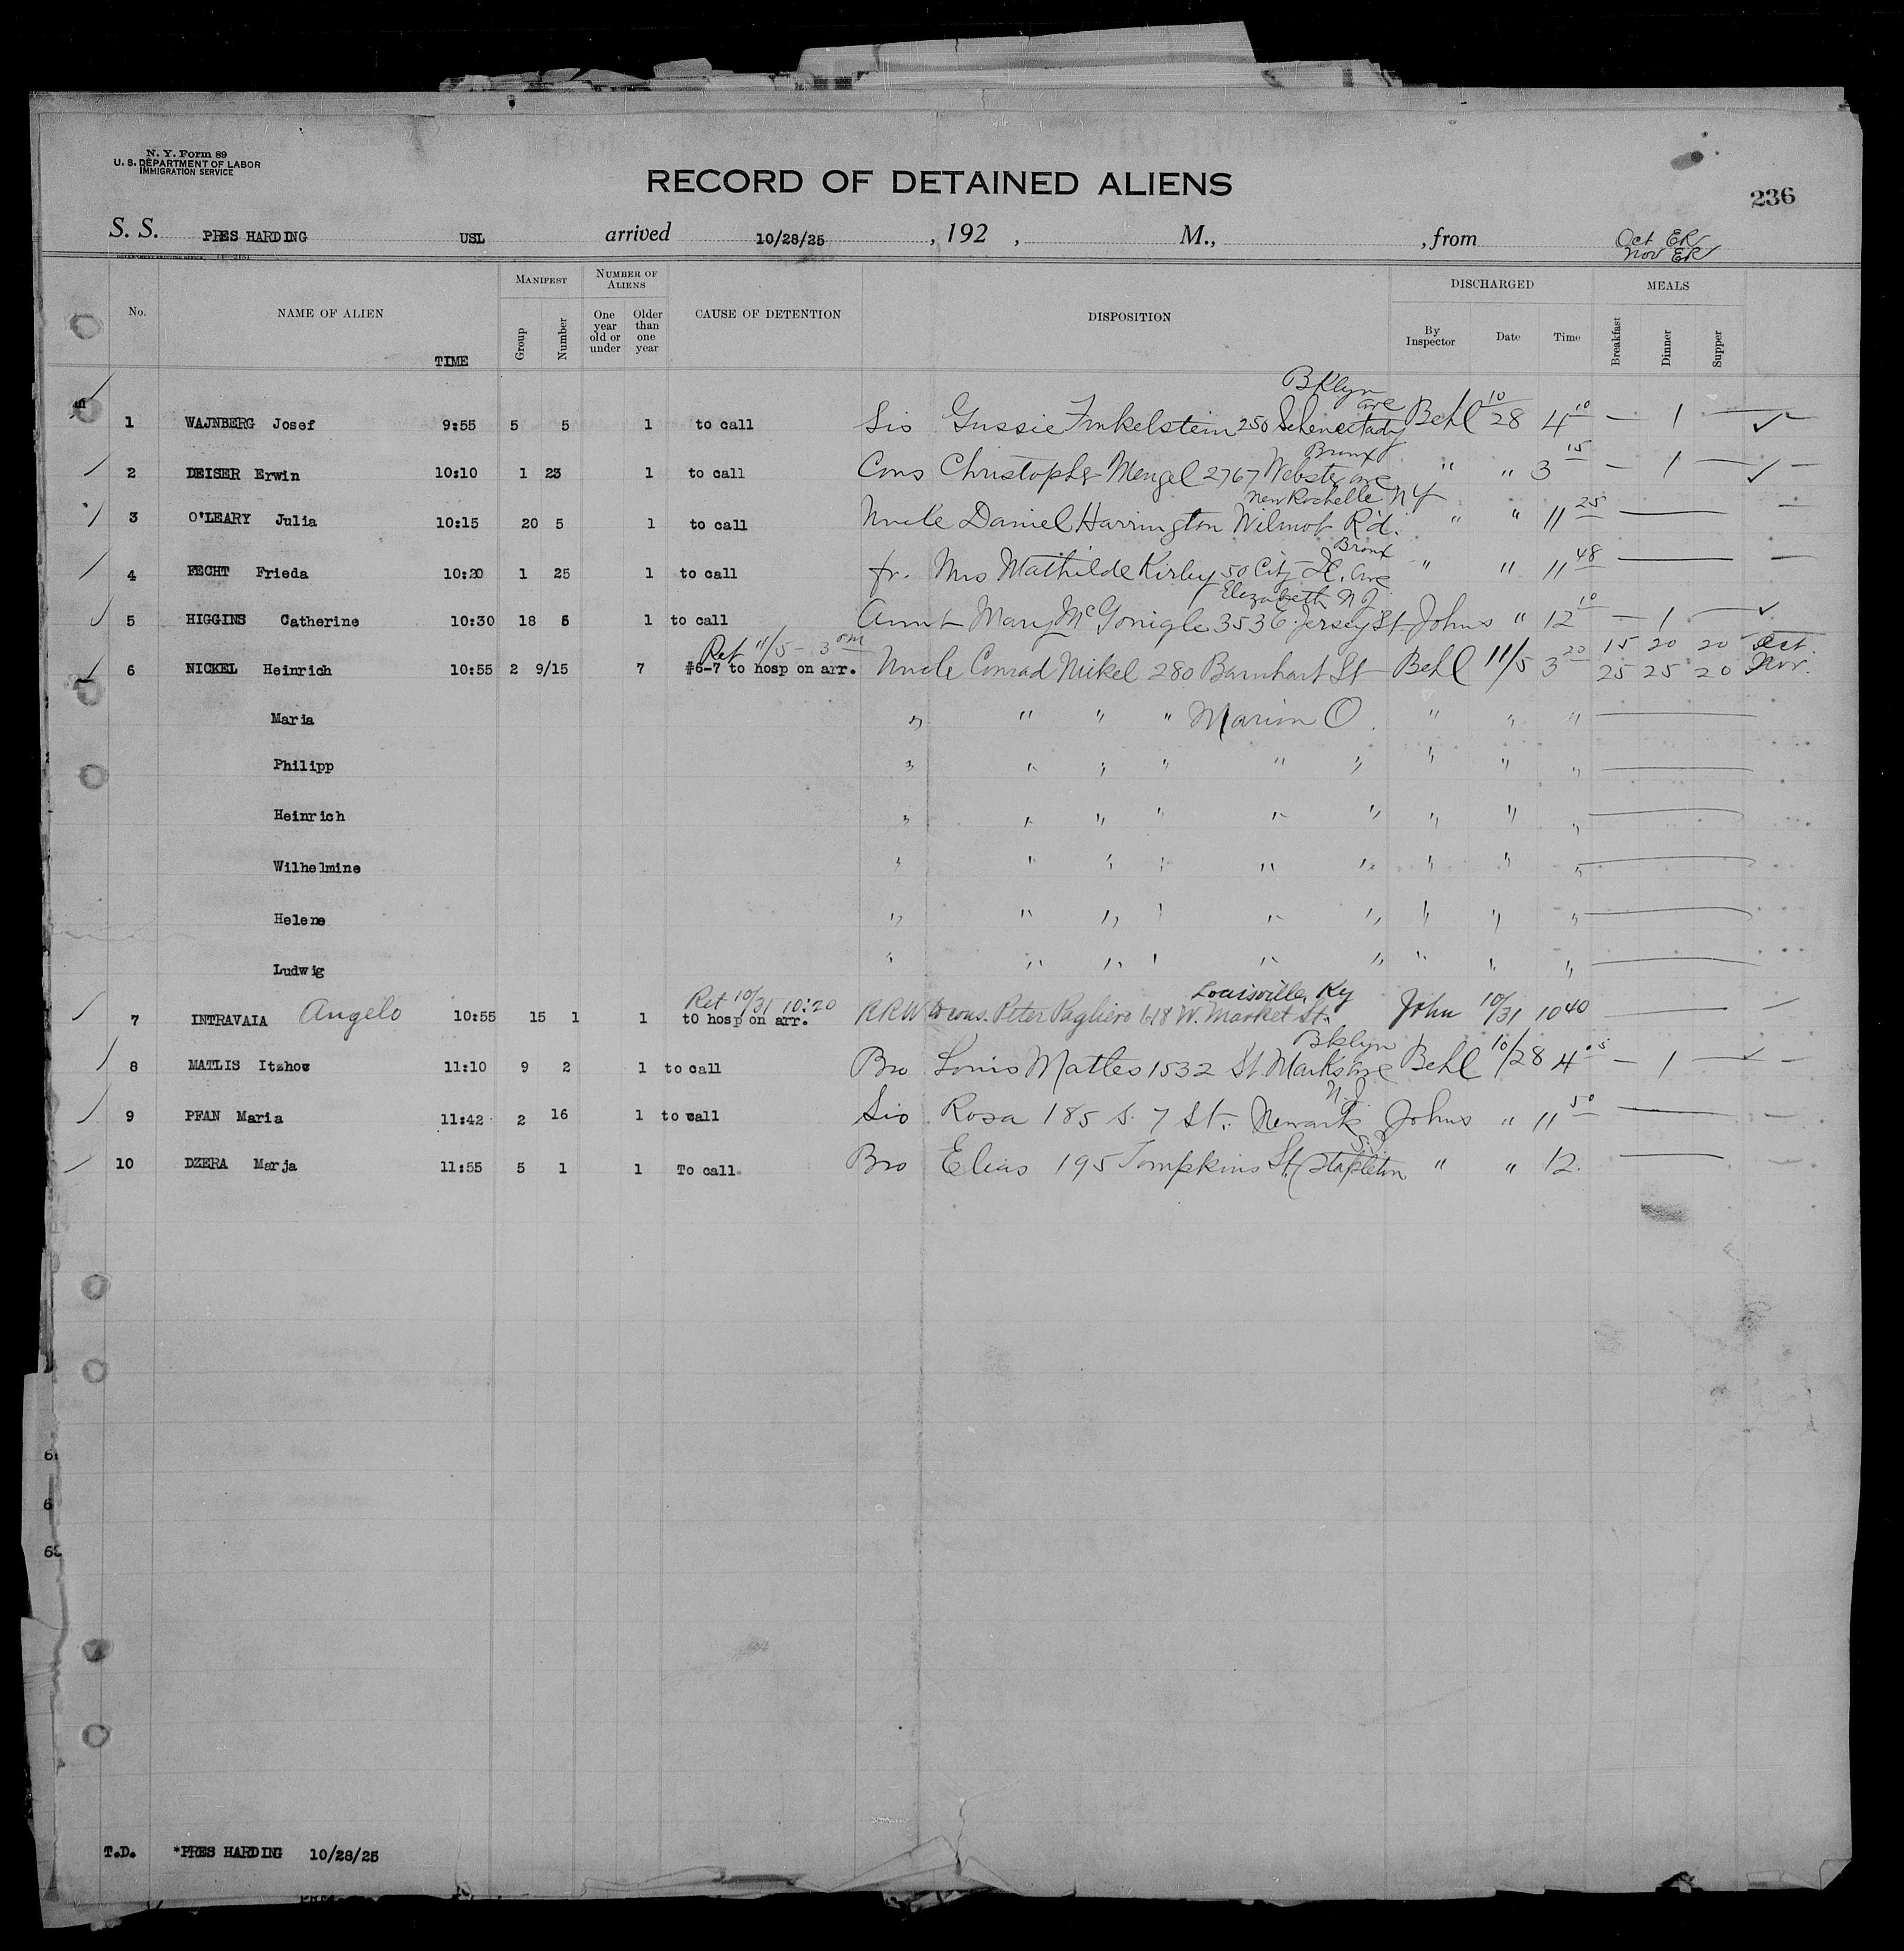 N. Y. Form 89
U. S. DEPARTMENT OF LABOR
IMMIGRATION SERVICE
RECORD OF DETAINED ALIENS
236
S. S. PRES HARDING USL arrived 10/28/25 , 192 , M., , from
Oct ER
Nov ER
No. NAME OF ALIEN TIME MANIFEST Group Number NUMBER OF ALIENS One year old or under Older than one year CAUSE OF DETENTION DISPOSITION DISCHARGED By Inspector Date Time MEALS Breakfast Dinner Supper
Bklyn
1 WAJNBERG Josef 9:55 5 5 1 to call Sis Gussie Finkelstein 250 Schenectady ave Behl 10/28 4 10 — 1 —
Bronx
2 DEISER Erwin 10:10 1 23 1 to call Cous Christopher Mengel 2767 Webster ave " " 3 15 — 1 —
New Rochelle N Y
3 O'LEARY Julia 10:15 20 5 1 to call Uncle Daniel Harrington Wilmot R'd. " " 11 25 —
Bronx
4 FECHT Frieda 10:20 1 25 1 to call fr. Mrs Mathilde Kirby 50 City Is. ave " " 11 48 —
Elizabeth N J
5 HIGGINS Catherine 10:30 18 5 1 to call Aunt Mary McGonigle 353 E. Jersey St Johns " 12 10 — 1 —
Ret 11/5 - 3 pm 15 20 20 Oct.
6 NICKEL Heinrich 10:55 2 9/15 7 #6-7 to hosp on arr. Uncle Conrad Nickel 280 Barnhart St Behl 11/5 3 20 25 25 20 Nov.
Maria " " " " Marion O. " " "
Philipp " " " " " " " " "
Heinrich " " " " " " " " "
Wilhelmine " " " " " " " " "
Helene " " " " " " " " "
Ludwig " " " " " " " " "
Ret 10/31 10:20 Louisville, Ky
7 INTRAVAIA Angelo 10:55 15 1 1 tO hosp on arr. RRW to cous. Peter Pagliero 618 W. Market St. John 10/31 10 40 —
Bklyn
8 MATLIS Itzhow 11:10 9 2 1 to call Bro Louis Matles 1532 St. Marks ave Behl 10/28 4 05 — 1 —
N.J.
9 PFAN Maria 11:42 2 16 1 to call Sis Rosa 185 S. 7 St. Newark Johns " 11 50 —
S.I.
10 DZERA Marja 11:55 5 1 1 To call. Bro Elias 195 Tompkins St. Stapleton " " 12. —
T.D. *PRES HARDING 10/28/25